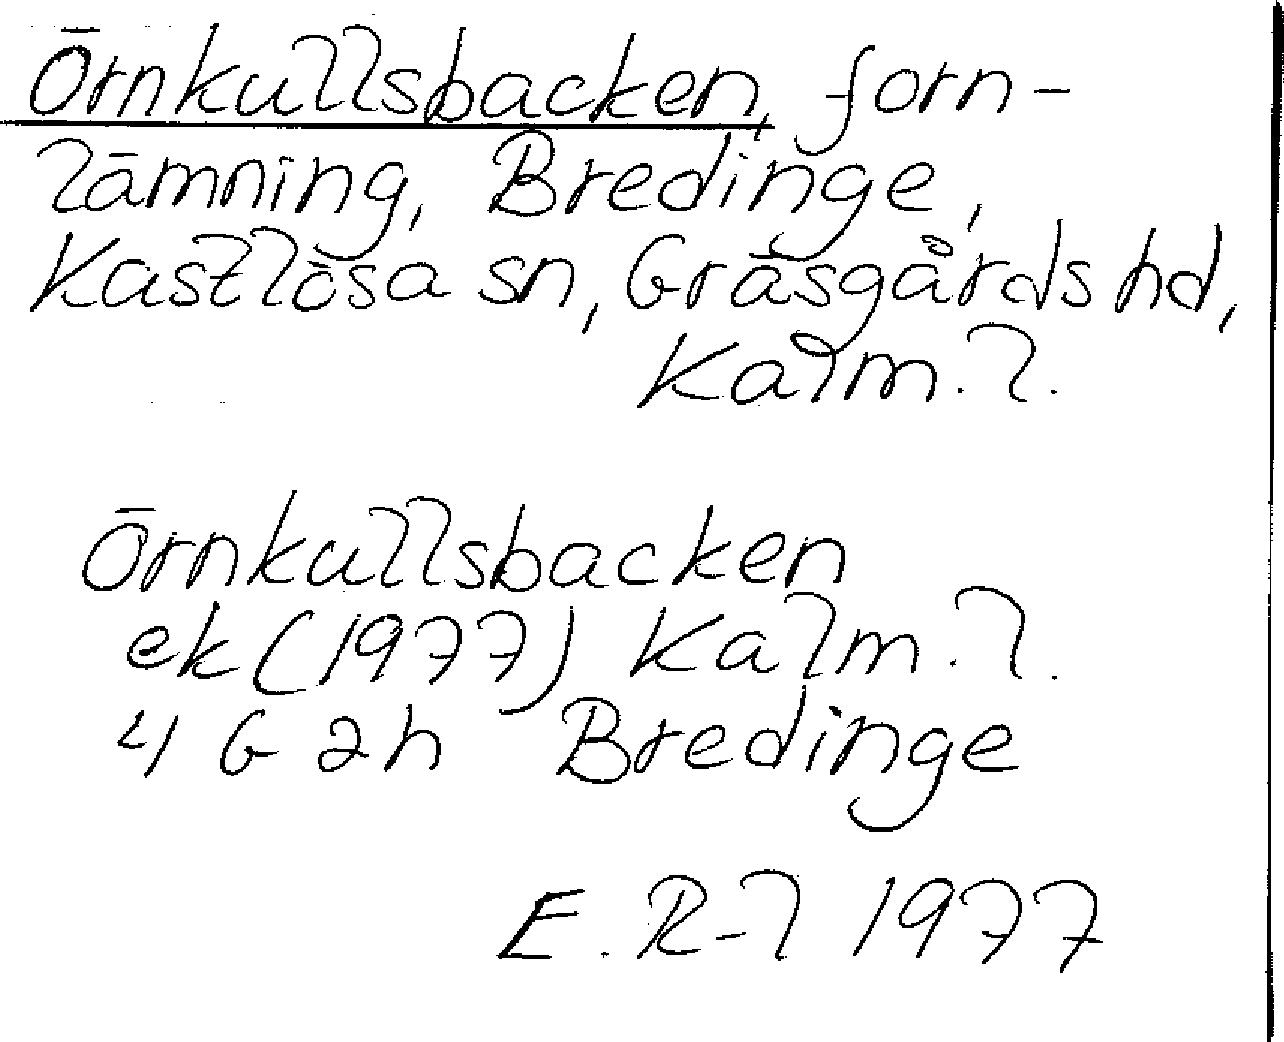 Örnkullsbacken, forn-
lämning, Bredinge,
Kastlösa sn, Gräsgårds hd,
Kalm. l.
Örnkullsbacken
ek (1977) Kalm. l.
4 G 2h Bredinge
E. R-l 1977